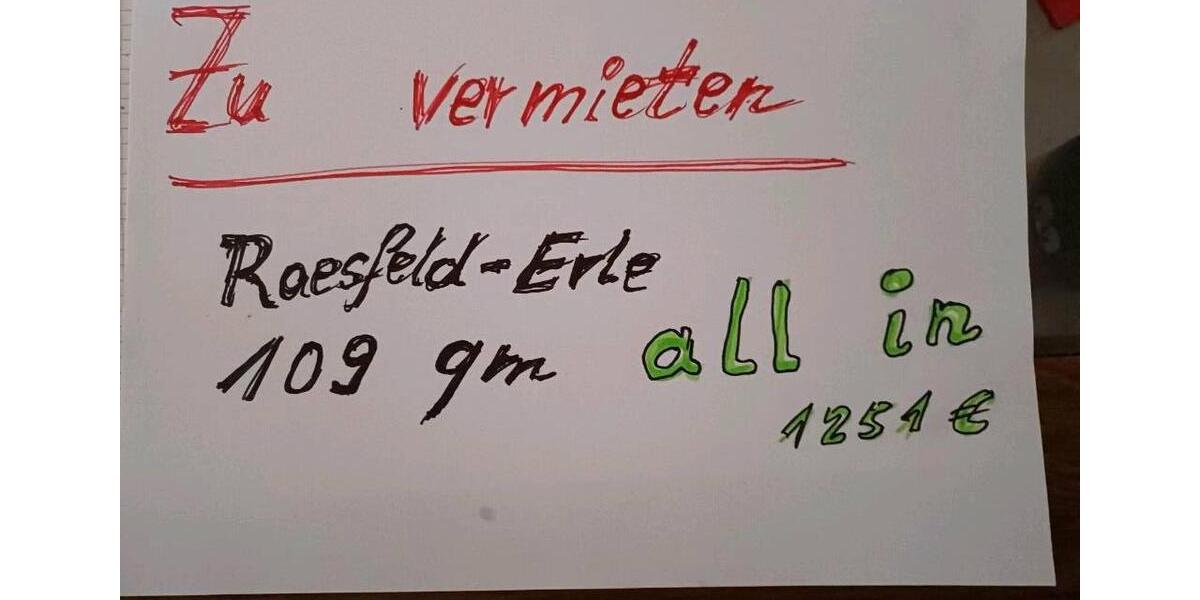 Zu vermieten
Raesfeld-Erle
109 qm all in
1251 €